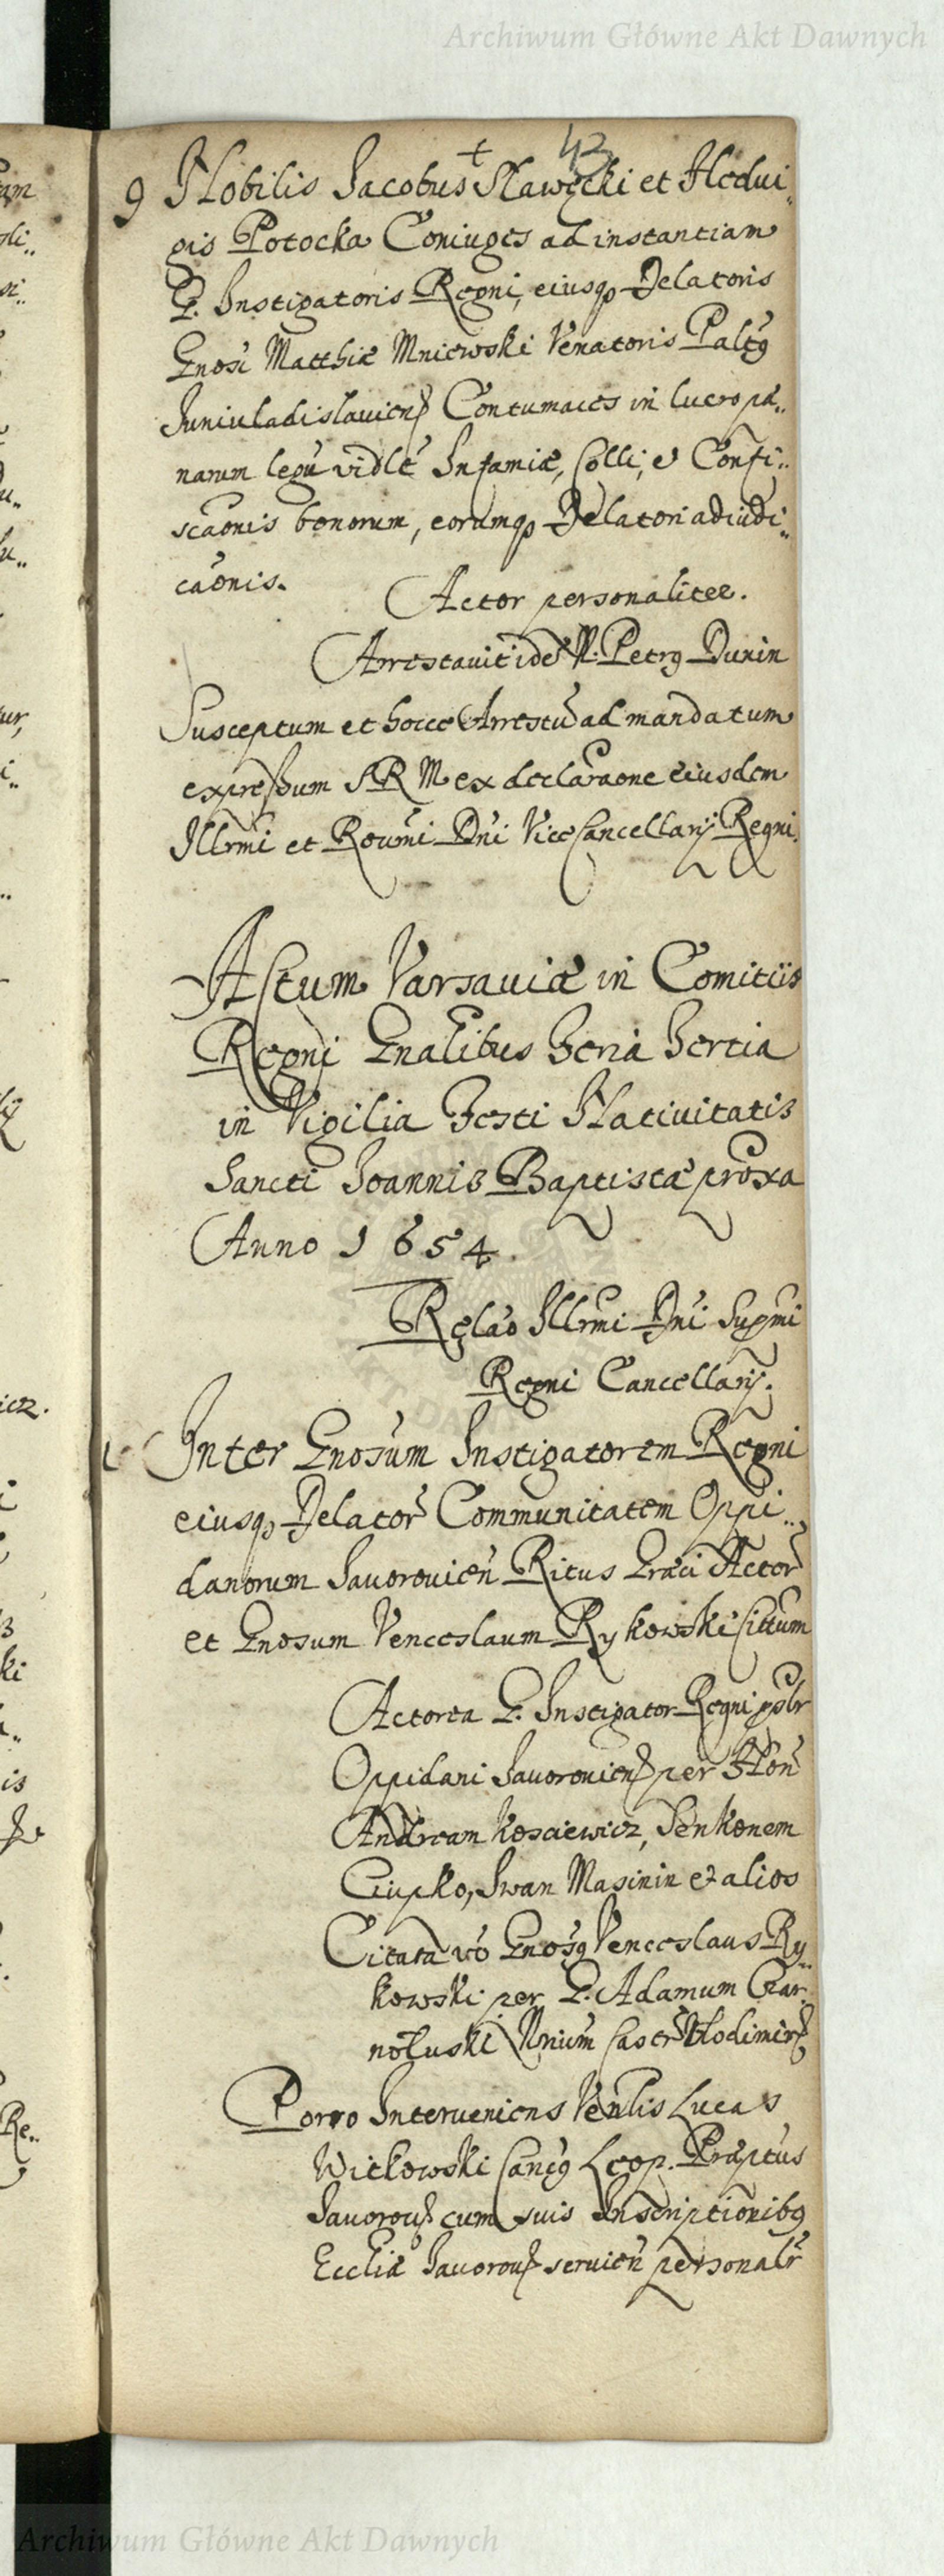 Archiwum Główne Akt Dawnych
43
9 Nobilis Jacobus Sławęcki et Hedui„
gis Potocka Coniuges ad instantiam
G. Instigatoris Regni, eiusq Delatoris
Gnosi Matthiæ Mniewski Venatoris Paltg
Juniuladislauien Contumaces in lucro pæ„
narum legu vidlt Infamiæ, Colli, e Confi„
scaonis bonorum, eorumq Delatori adiudi„
caonis.
Actor personaliter.
Arrestauit ide N. Petrg Dunin
Susceptum et hocce Arrestu ad mandatum
expressum SRM ex declaraone eiusdem
Illrmi et Reurmi Dni ViceCancellarij Regni.
Actum Varsauiæ in Comitiis
Regni Gnalibus Feria Tertia
in Vigilia Festi Natiuitatis
Sancti Joannis Baptistæ proxa
Anno 1654.
Relao Illrmi Dni Supmi
Regni Cancellarij.
1 Inter Gnosum Instigatorem Regni
eiusq Delator Communitatem Oppi„
danorum Jauorouien Ritus Græci Actor
et Gnosum Venceslaum Rykowski Citum
Actorea G. Instigator Regni pslr
Oppidani Jauorouien per Hon
Andream Kosciewicz, Senkonem
Ciupko, Iwan Masinin et alios
Citata vo Gnosg Venceslaus Ry„
kowski per G. Adamum Czar„
notuski Nrium Castr Wlodimir
Porro Interueniens Venlis Lucas
Witkowski Cancg Leop. Præptus
Jauorou cum suis Inscriptionibg
Eccliæ Jauorou seruien personalr
Archiwum Główne Akt Dawnych